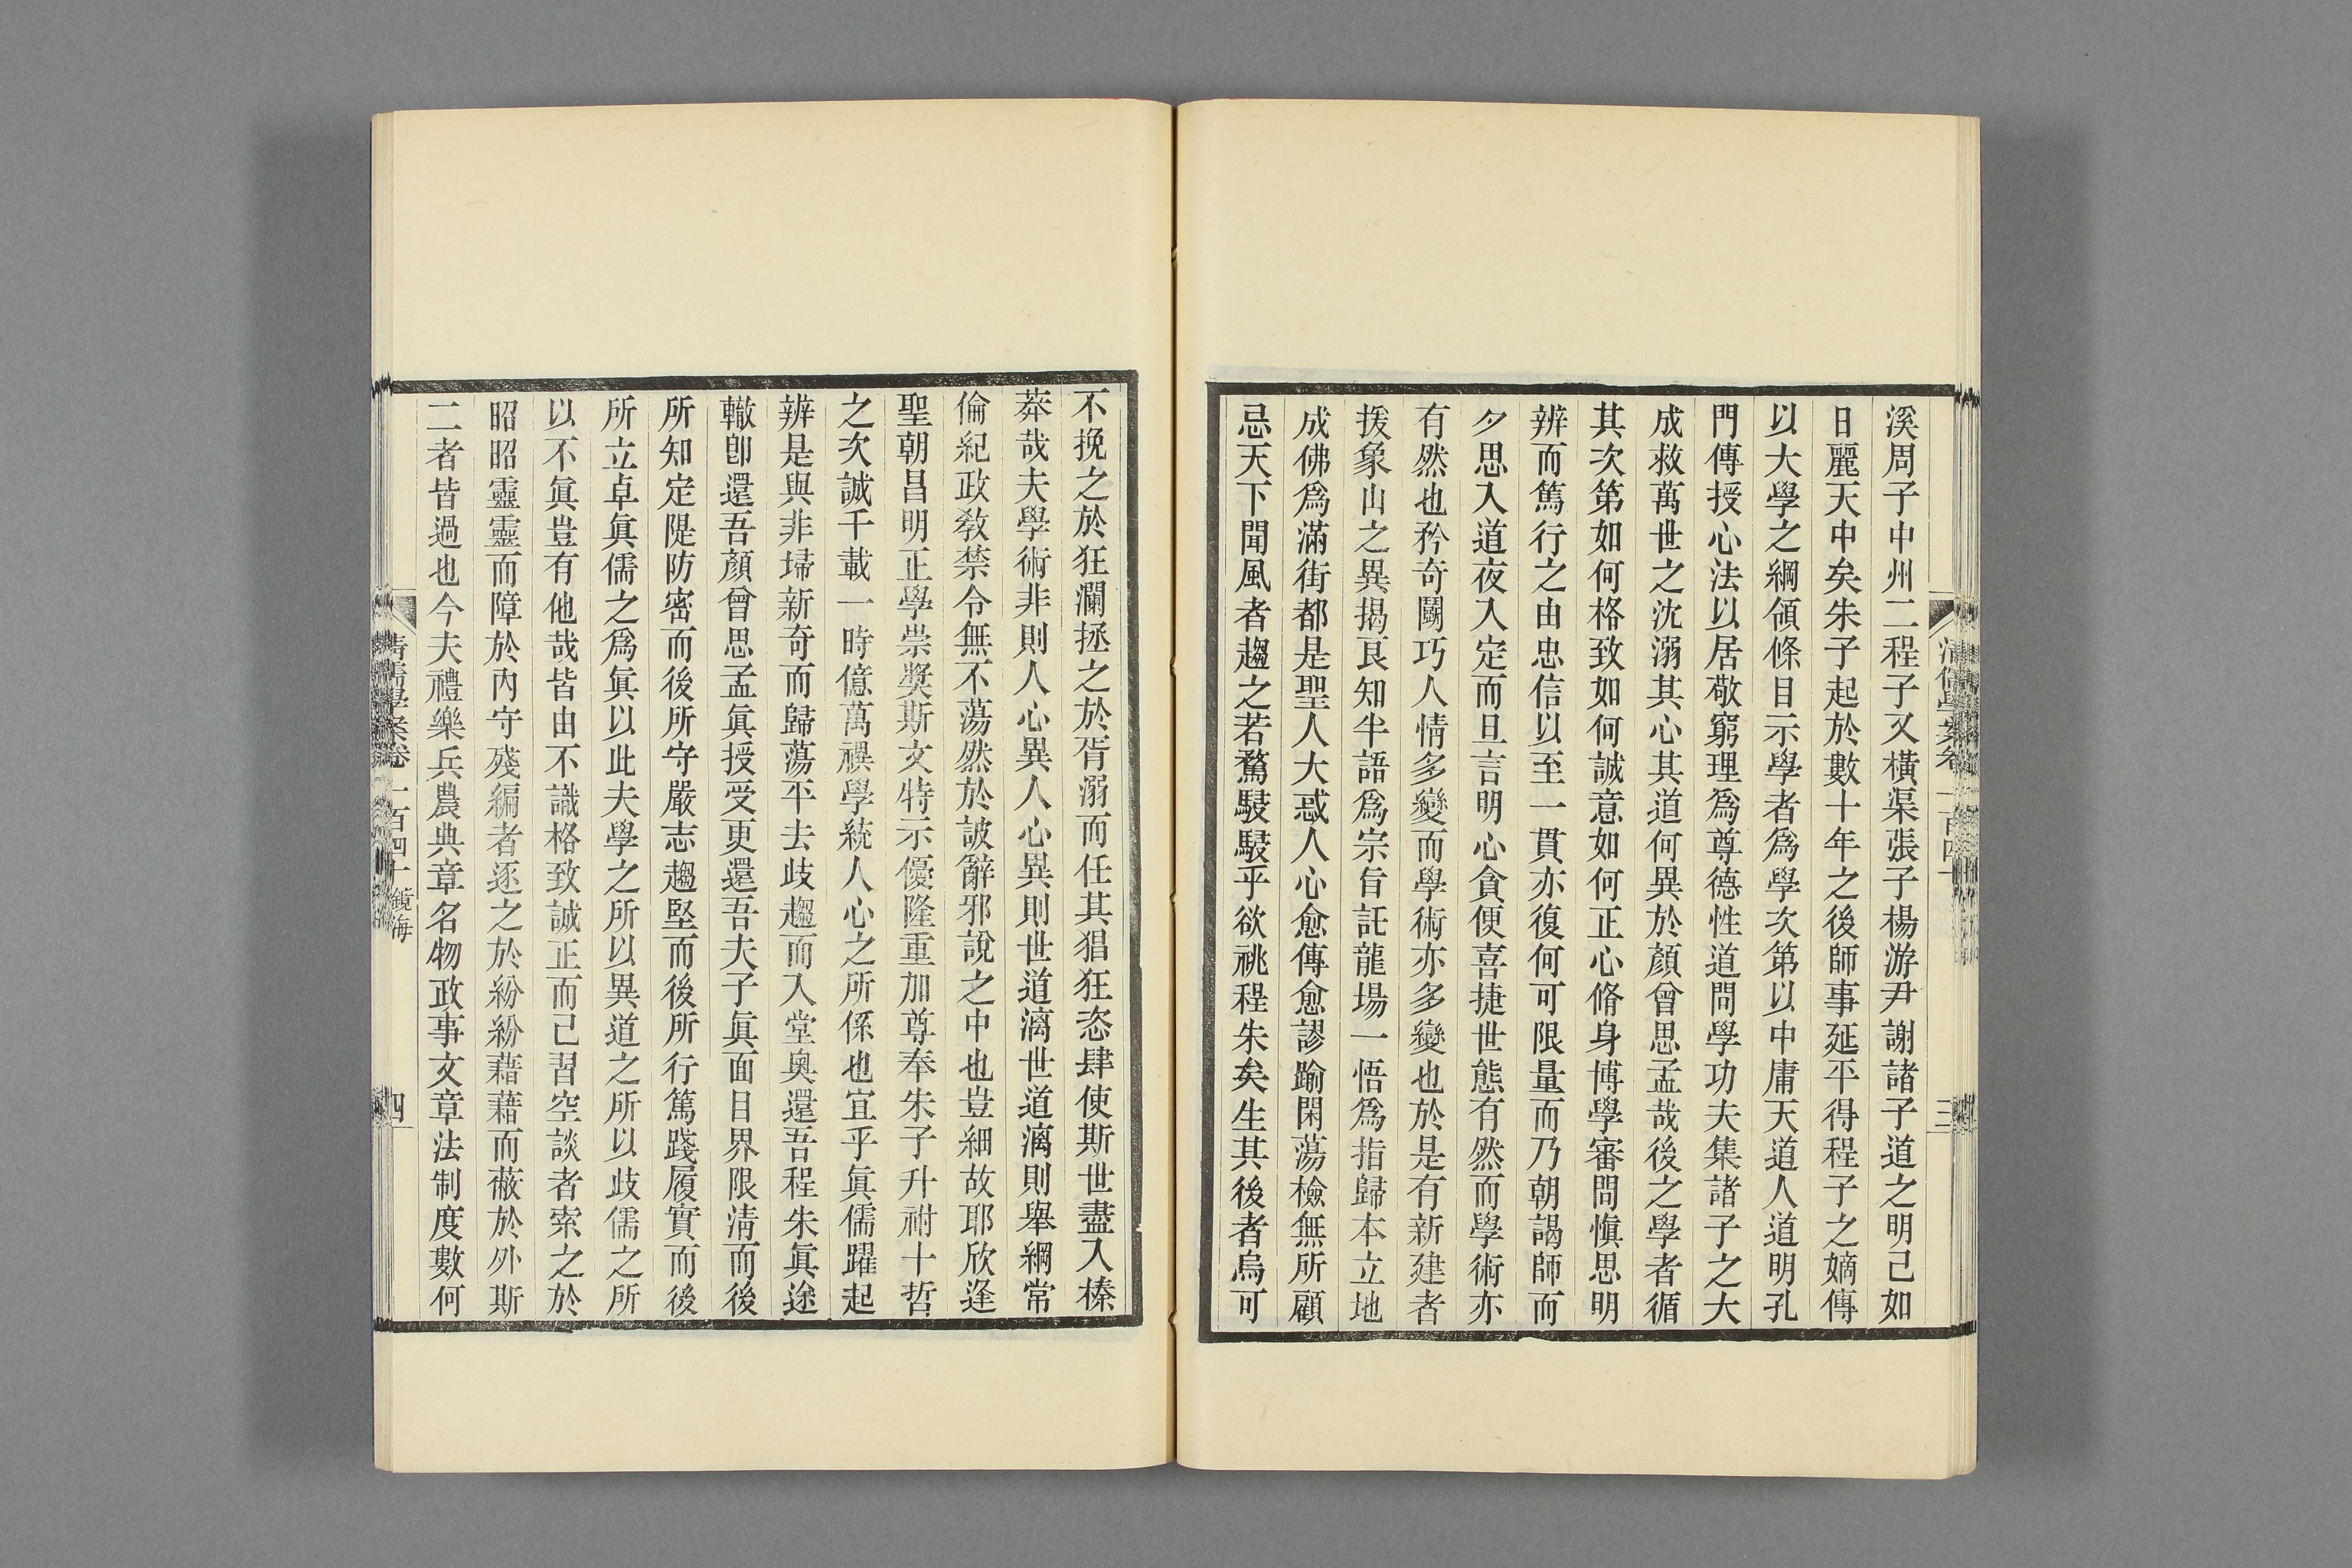 溪周子中州二程子又橫渠張子楊游尹謝諸子道之明己如
日麗天中矣朱子起於數十年之後師事延平得程子之嫡傳
以大學之綱領條目示學者爲學次第以中庸天道人道明孔
門傳授心法以居敬窮理爲尊德性道問學功夫集諸子之大
成救萬世之沈溺其心其道何異於顏曾思孟哉後之學者循
其次第如何格致如何誠意如何正心脩身博學審問愼思明
辨而篤行之由忠信以至一貫亦復何可限量而乃朝謁師而
夕思入道夜入定而旦言明心貪便喜捷世態有然而學術亦
有然也矜奇鬭巧人情多變而學術亦多變也於是有新建者
援象山之異揭良知半語爲宗旨託龍場一悟爲指歸本立地
成佛爲滿街都是聖人大惑人心愈傳愈謬踰閑蕩檢無所顧
忌天下聞風者趨之若騖駸駸乎欲祧程朱矣生其後者烏可
三
不挽之於狂瀾拯之於胥溺而任其猖狂恣肆使斯世盡入榛
莽哉夫學術非則人心異人心異則世道漓世道漓則舉綱常
倫紀政敎禁令無不蕩然於詖辭邪說之中也豈細故耶欣逢
聖朝昌明正學崇獎斯文特示優隆重加尊奉朱子升祔十哲
之次誠千載一時億萬禩學統人心之所係也宜乎眞儒躍起
辨是與非埽新奇而歸蕩平去歧趨而入堂奧還吾程朱眞途
轍卽還吾顏曾思孟眞授受更還吾夫子眞面目界限淸而後
所知定隄防密而後所守嚴志趨堅而後所行篤踐履實而後
所立卓眞儒之爲眞以此夫學之所以異道之所以歧儒之所
以不眞豈有他哉皆由不識格致誠正而己習空談者索之於
昭昭靈靈而障於內守殘編者逐之於紛紛藉藉而蔽於外斯
二者皆過也今夫禮樂兵農典章名物政事文章法制度數何
清儒學案卷一百四十 鏡海
四